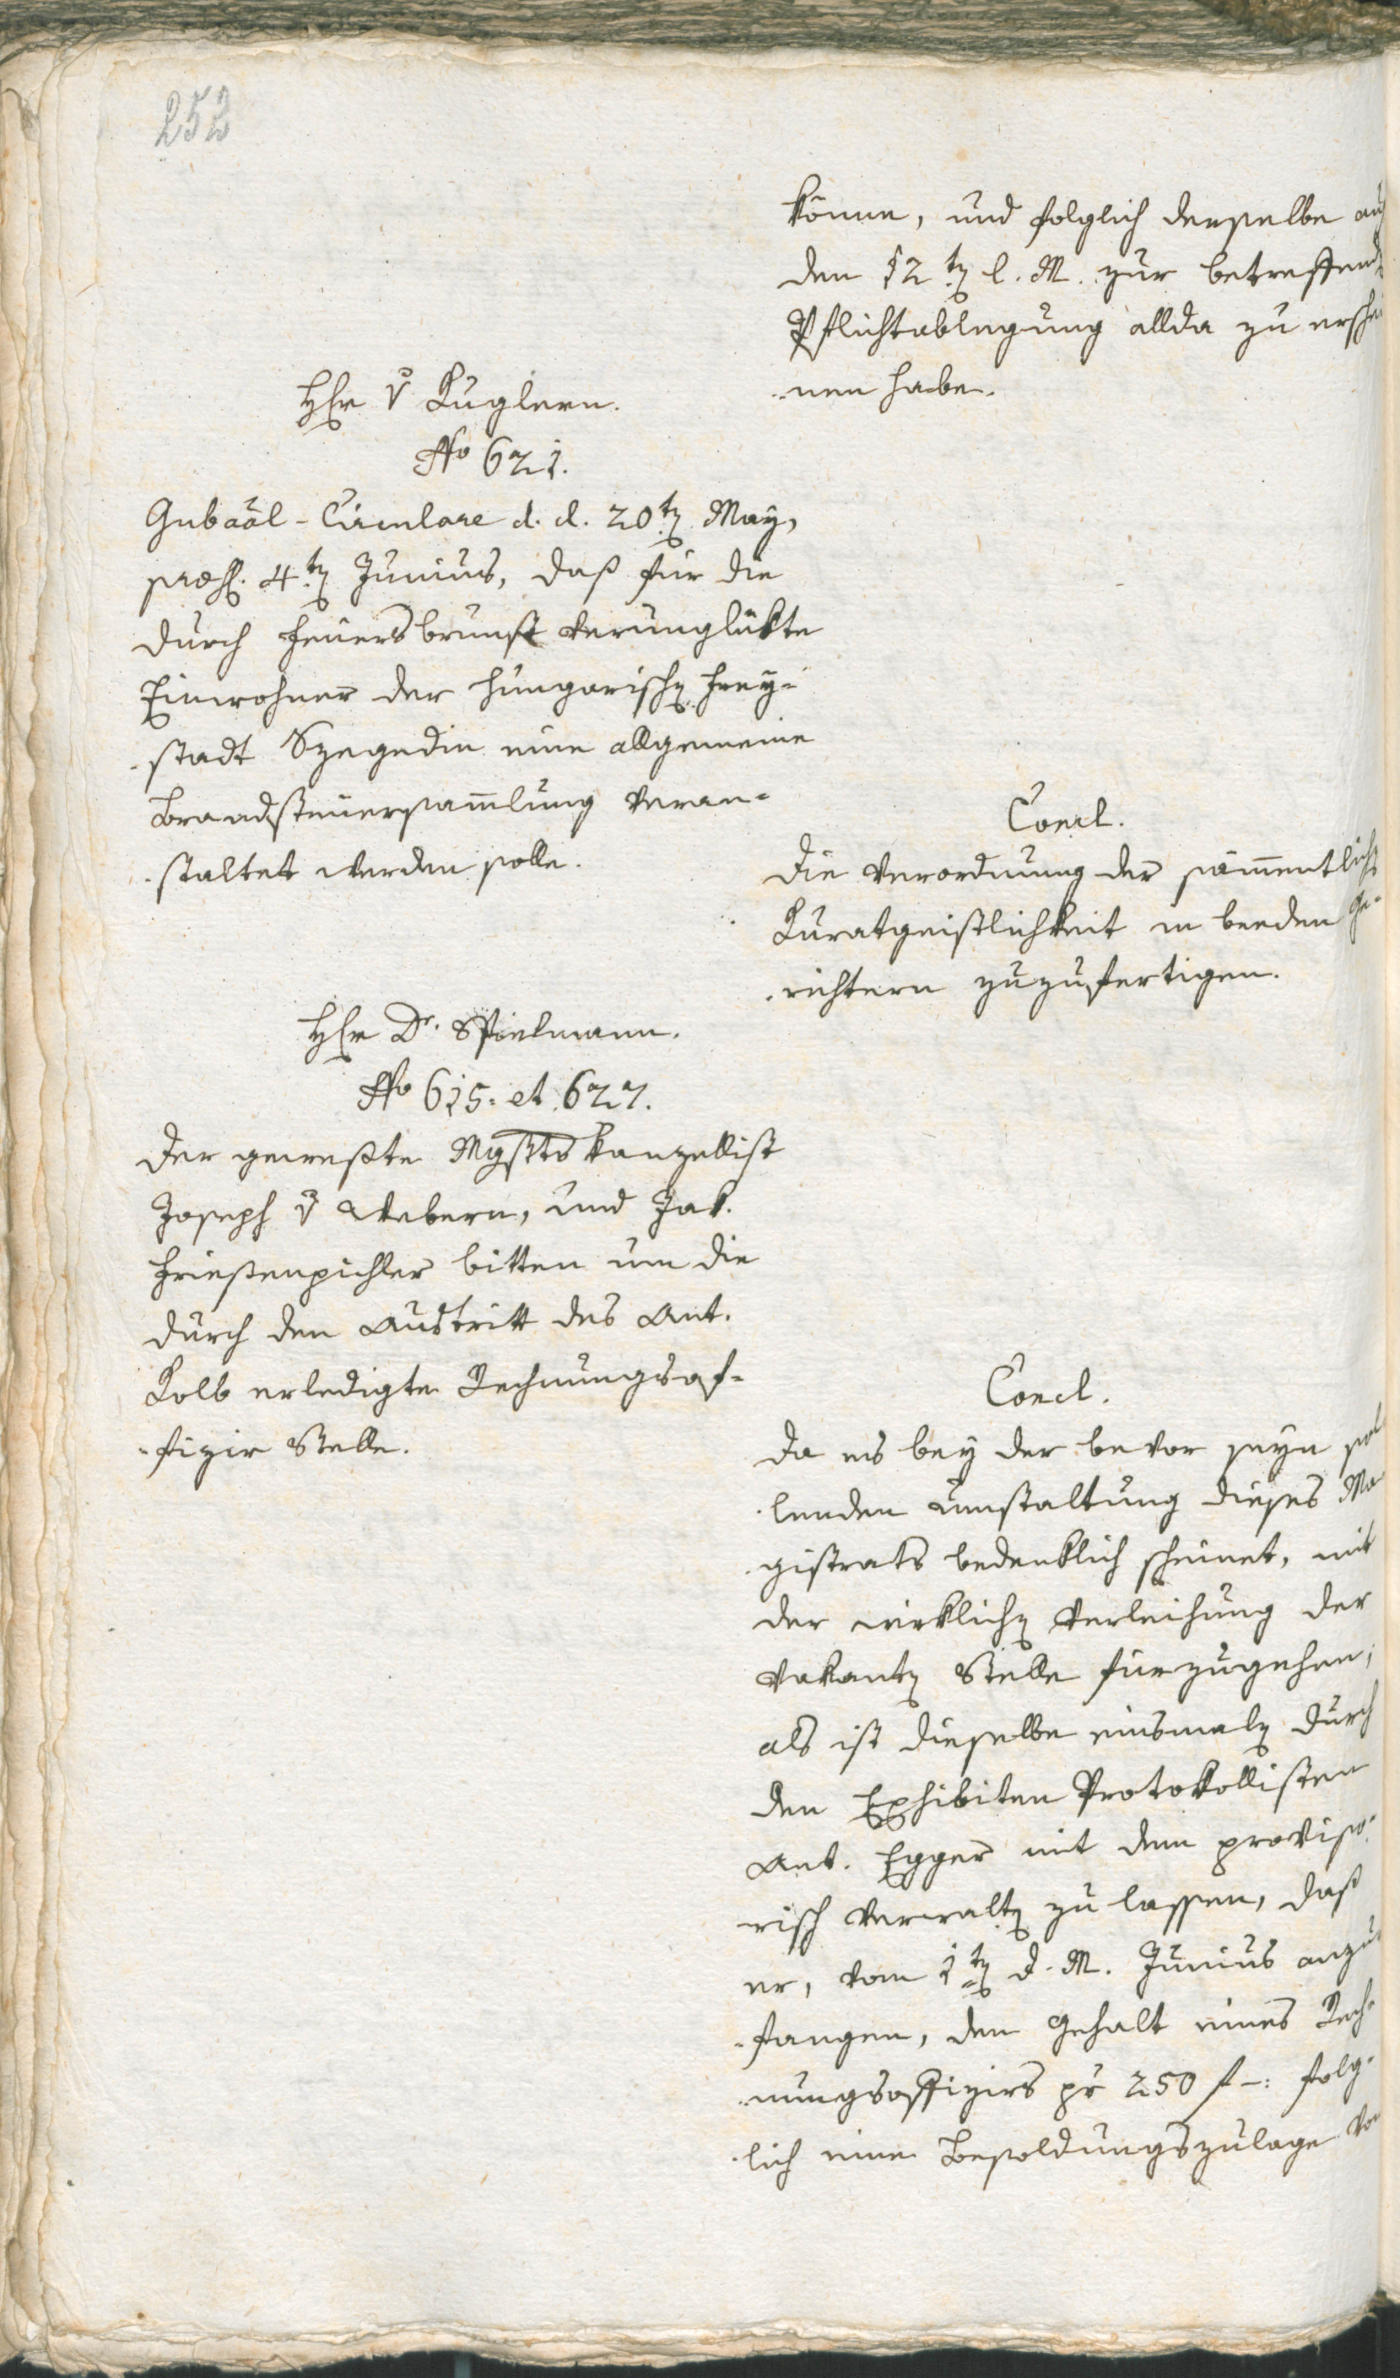 252
könne, und folglich derselbe auf
den 12tn l. M. zur betreffend
Pflichtablegung allda zu erschei
nen habe.
Hr v Kuglern.
No 621.
Gubaal-Circulare d. d. 20tn May,
praes. 4tn Junius, daß für die
durch Feuersbrunst verunglükte
Einwohner der hungarischn Frey-
stadt Szegedin eine allgemeine
Brandsteuersammlung veran-
staltet werden solle.
Concl.
Die Verordnung der sämmentlichn
Kuratgeistlichkeit in beeden Ge-
richtern zuzufertigen.
Hr Dr. Spielmann.
No 615. et 627.
Der geweste Mgstts Kanzellist
Joseph v Webern, und Jak.
Frießenpichler bitten um die
durch den Austritt des Ant.
Kolb erledigte Rechnungsof-
fizir Stelle.
Concl.
Da es bey der bevor seyn sol
lenden Umstaltung dieses Ma
gistrats bedenklich scheinet, mit
der wirklichn Verleihung der
vakantn Stelle fürzugehen,
als ist dieselbe einsmaln durch
den Exhibiten Protokollisten
Ant. Egger mit dem proviso-
risch verwaltn zu lassen, daß
er, vom 1tn d. M. Junius anzu
fangen, den Gehalt eines Rech-
nungsoffizirs pr 250 f -: folg-
lich eine Besoldungszulage von